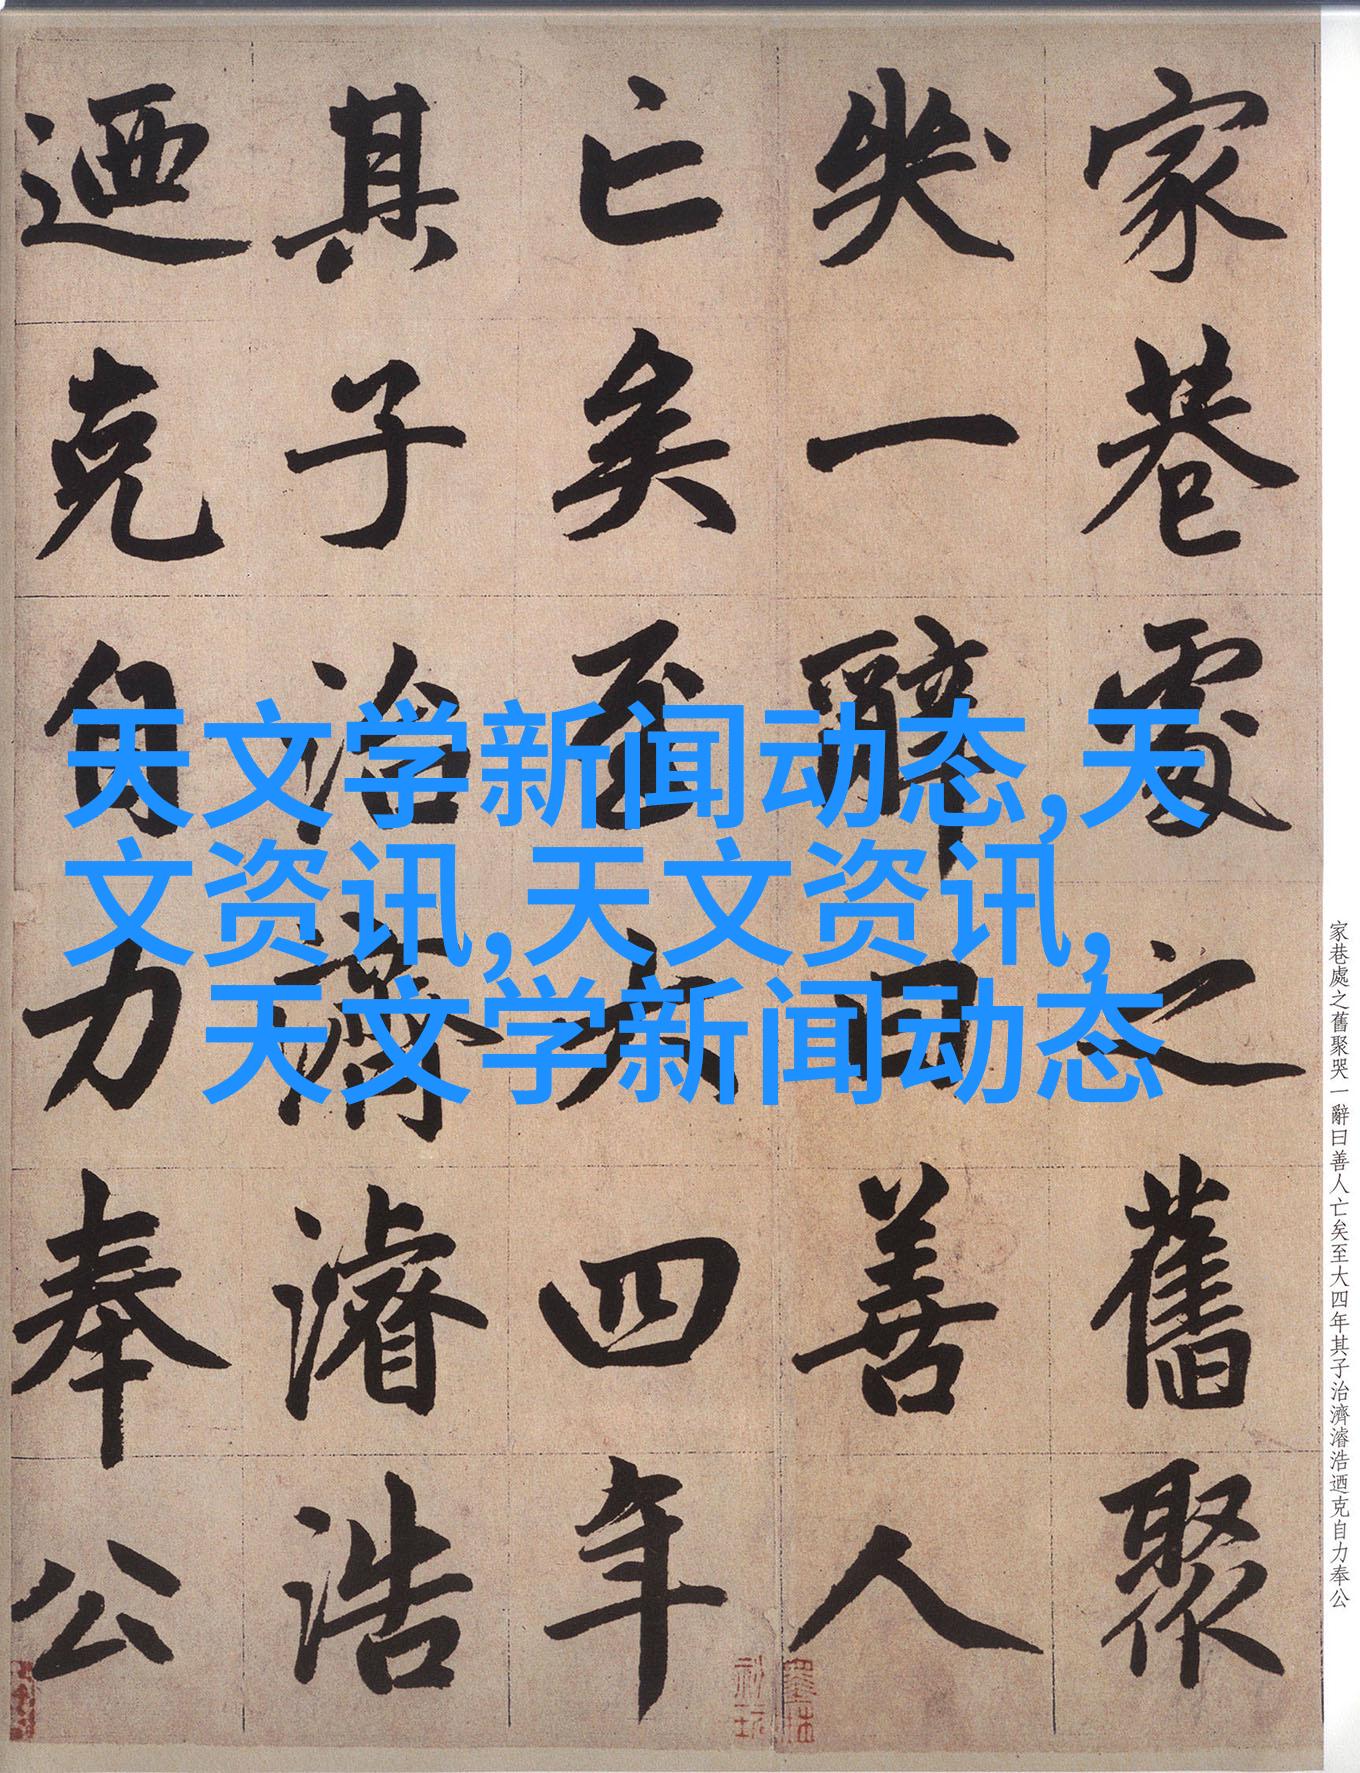 家巷處之舊聚
哭一辭曰善人
亡矣至大四年
其子治濟濬浩
迺克自力奉公
天文学新闻动态,天
文资讯,天文资讯,
天文学新闻动态
家巷處之舊聚哭一辭曰善人亡矣至大四年其子治濟濬浩迺克自力奉公